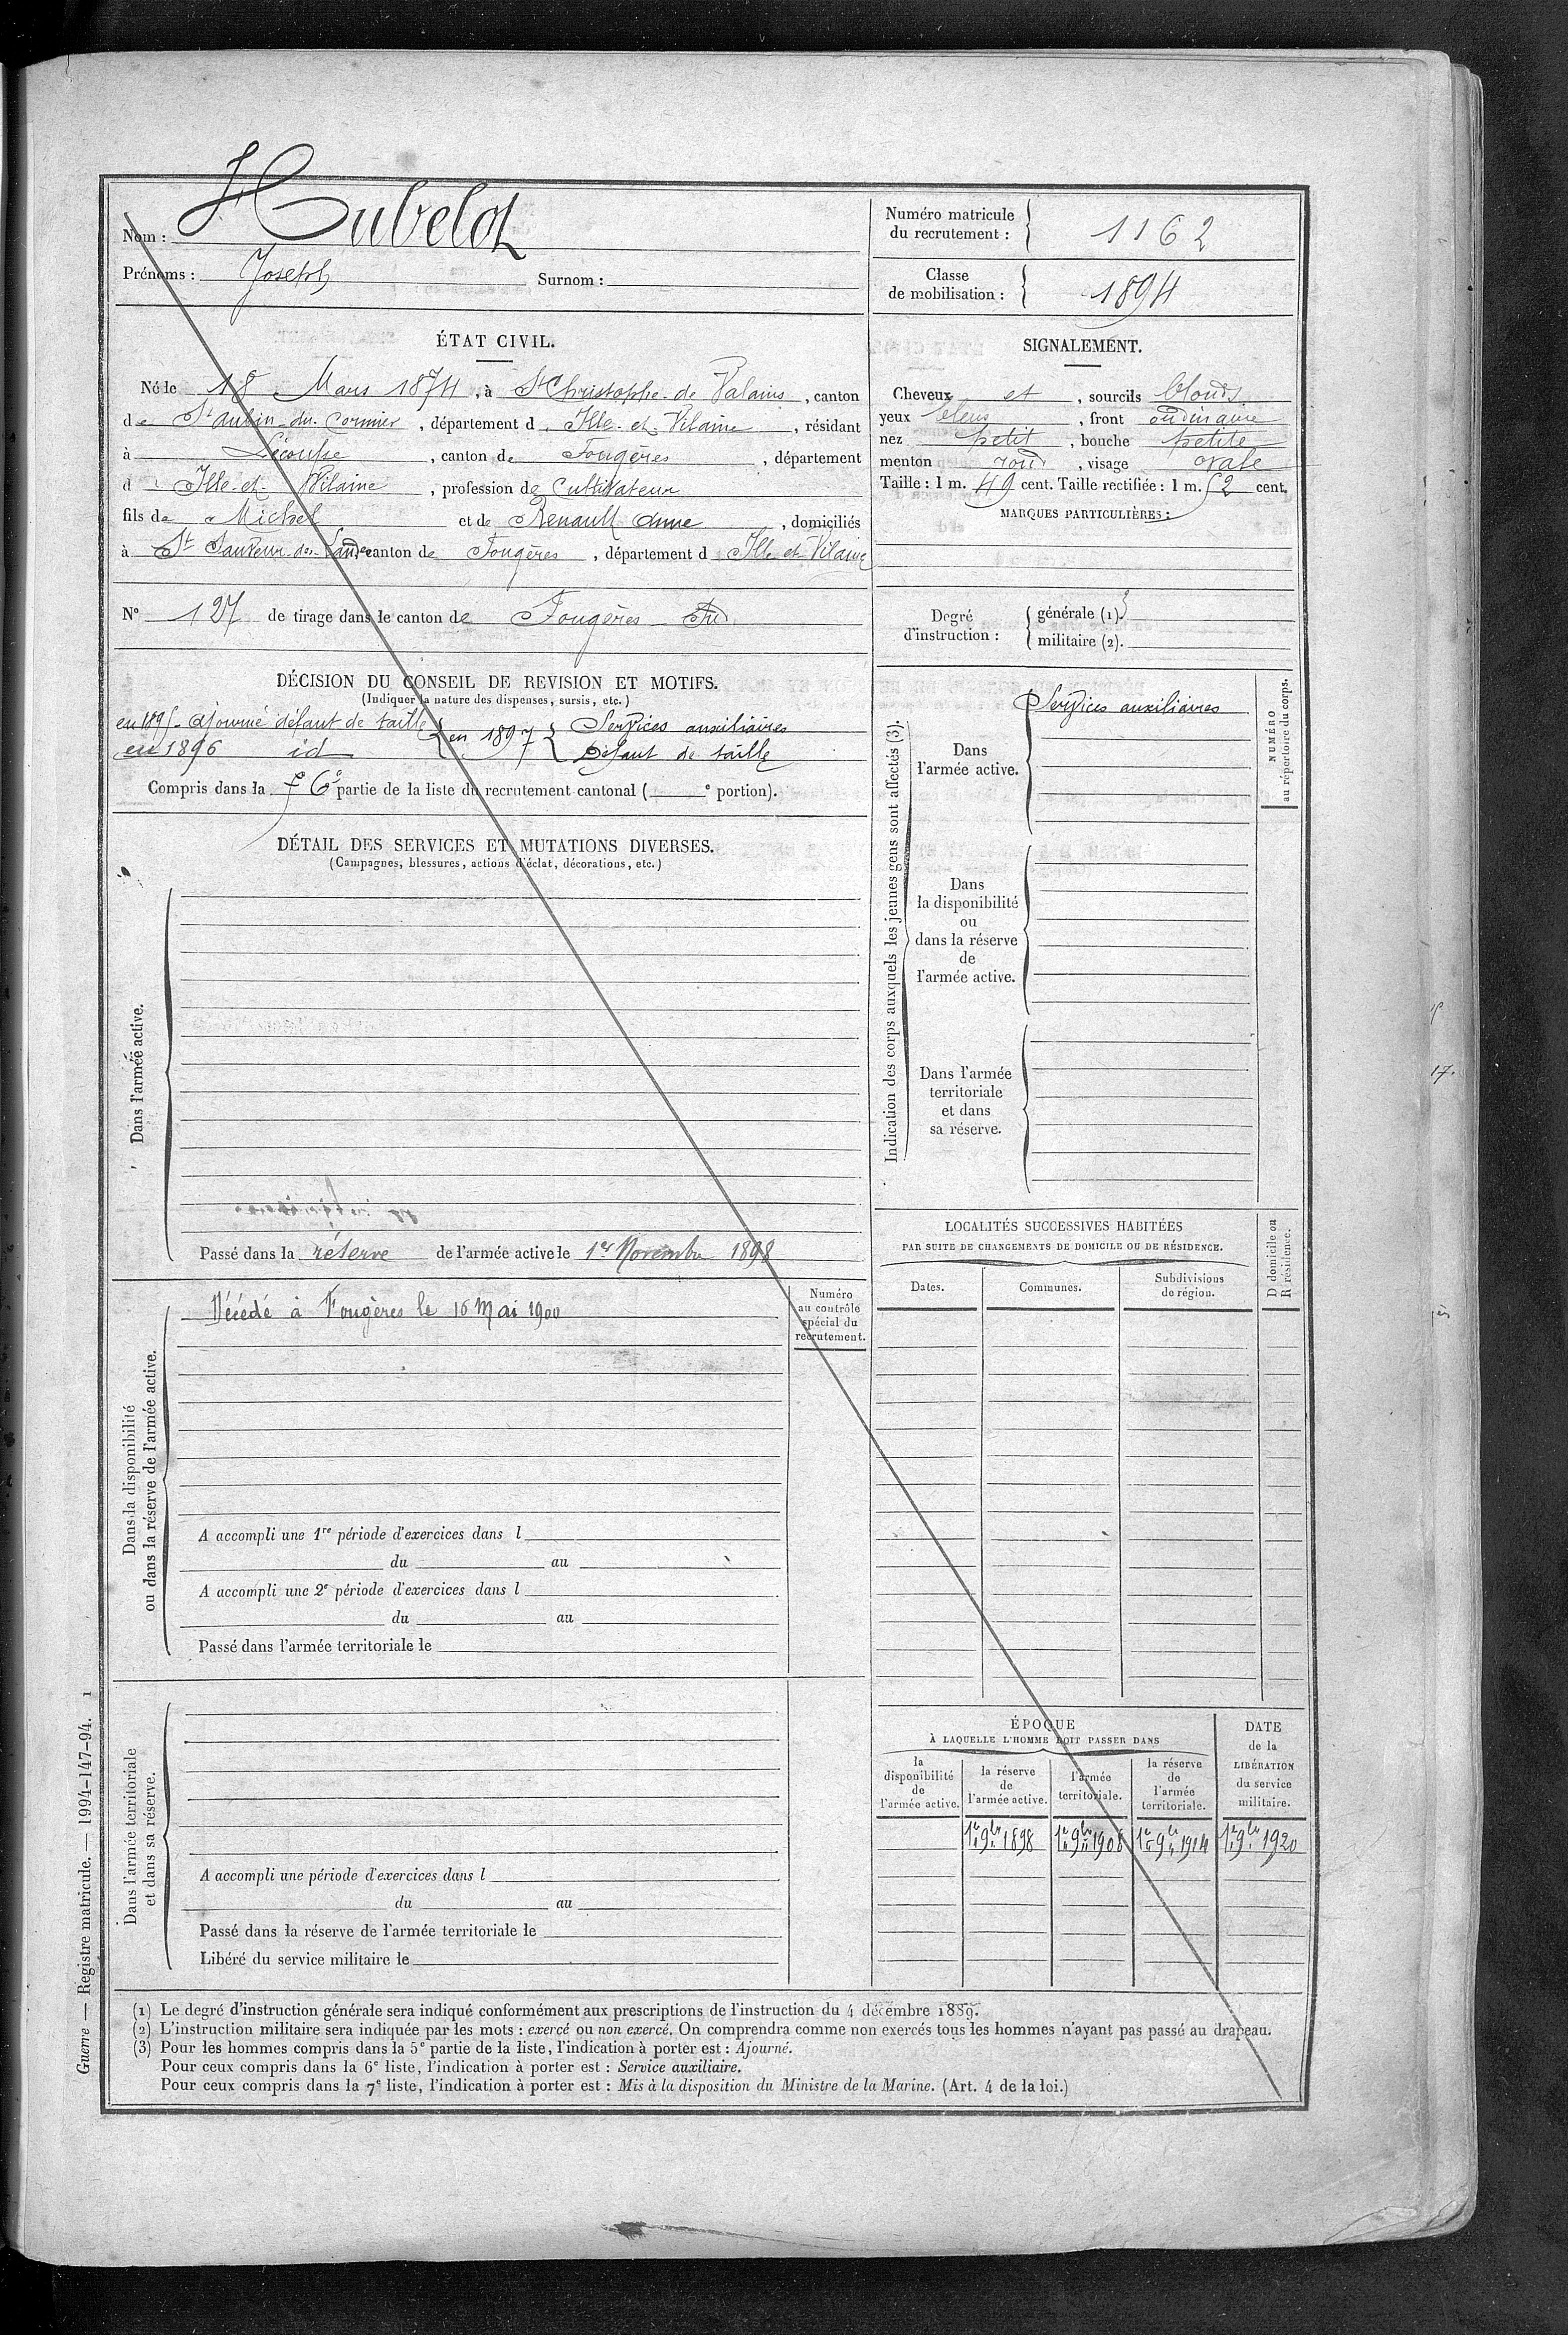 Nom : Hubelot
Prénoms : Joseph Surnom :
Numéro matricule du recrutement : 1162
Classe de mobilisation : 1894
ÉTAT CIVIL.
Né le 18 Mars 1874, à St Christophe-de-Valains, canton
de St Aubin-du-Cormier, département d'Ille-et-Vilaine, résidant
à Lécousse, canton de Fougères, département
d'Ille-et-Vilaine, profession de Cultivateur
fils de Michel et de Renault Anne, domiciliés
à St Sauveur-des-Landes canton de Fougères, département d'Ille et Vilaine
N° 127 de tirage dans le canton de Fougères Sud
SIGNALEMENT.
Cheveux et, sourcils blonds
yeux bleus, front ordinaire
nez petit, bouche petite
menton rond, visage ovale
Taille : 1 m. 49 cent. Taille rectifiée : 1 m. 52 cent.
MARQUES PARTICULIÈRES :
Degré d'instruction : générale (1).
militaire (2).
DÉCISION DU CONSEIL DE REVISION ET MOTIFS.
(Indiquer la nature des dispenses, sursis, etc.)
en 1895 - ajourné défaut de taille
en 1896 id
en 1897 Services auxiliaires
Défaut de taille
Compris dans la 6e partie de la liste du recrutement cantonal ( e portion).
DÉTAIL DES SERVICES ET MUTATIONS DIVERSES.
(Campagnes, blessures, actions d'éclat, décorations, etc.)
Dans l'armée active.
Passé dans la réserve de l'armée active le 1er Novembre 1898
Indication des corps auxquels les jeunes gens sont affectés (3).
Dans l'armée active.
Services auxiliaires
Dans la disponibilité ou dans la réserve de l'armée active.
Dans l'armée territoriale et dans sa réserve.
NUMÉRO au répertoire du corps.
LOCALITÉS SUCCESSIVES HABITÉES
PAR SUITE DE CHANGEMENTS DE DOMICILE OU DE RÉSIDENCE.
Dates. Communes. Subdivisions de région.
D domicile ou R résidence.
Dans la disponibilité ou dans la réserve de l'armée active.
Numéro au contrôle spécial du recrutement.
Décédé à Fougères le 16 Mai 1900
A accompli une 1re période d'exercices dans l
du au
A accompli une 2e période d'exercices dans l
du au
Passé dans l'armée territoriale le
Dans l'armée territoriale et dans sa réserve.
A accompli une période d'exercices dans l
du au
Passé dans la réserve de l'armée territoriale le
Libéré du service militaire le
ÉPOQUE
À LAQUELLE L'HOMME DOIT PASSER DANS
la disponibilité de l'armée active.
la réserve de l'armée active.
l'armée territoriale.
la réserve de l'armée territoriale.
DATE de la LIBÉRATION du service militaire.
1er 9bre 1898 1er 9bre 1908 1er 9bre 1914 1er 9bre 1920
(1) Le degré d'instruction générale sera indiqué conformément aux prescriptions de l'instruction du 4 décembre 1889.
(2) L'instruction militaire sera indiquée par les mots : exercé ou non exercé. On comprendra comme non exercés tous les hommes n'ayant pas passé au drapeau.
(3) Pour les hommes compris dans la 5e partie de la liste, l'indication à porter est : Ajourné.
Pour ceux compris dans la 6e liste, l'indication à porter est : Service auxiliaire.
Pour ceux compris dans la 7e liste, l'indication à porter est : Mis à la disposition du Ministre de la Marine. (Art. 4 de la loi.)
Guerre — Registre matricule. — 1994-147-94. 1